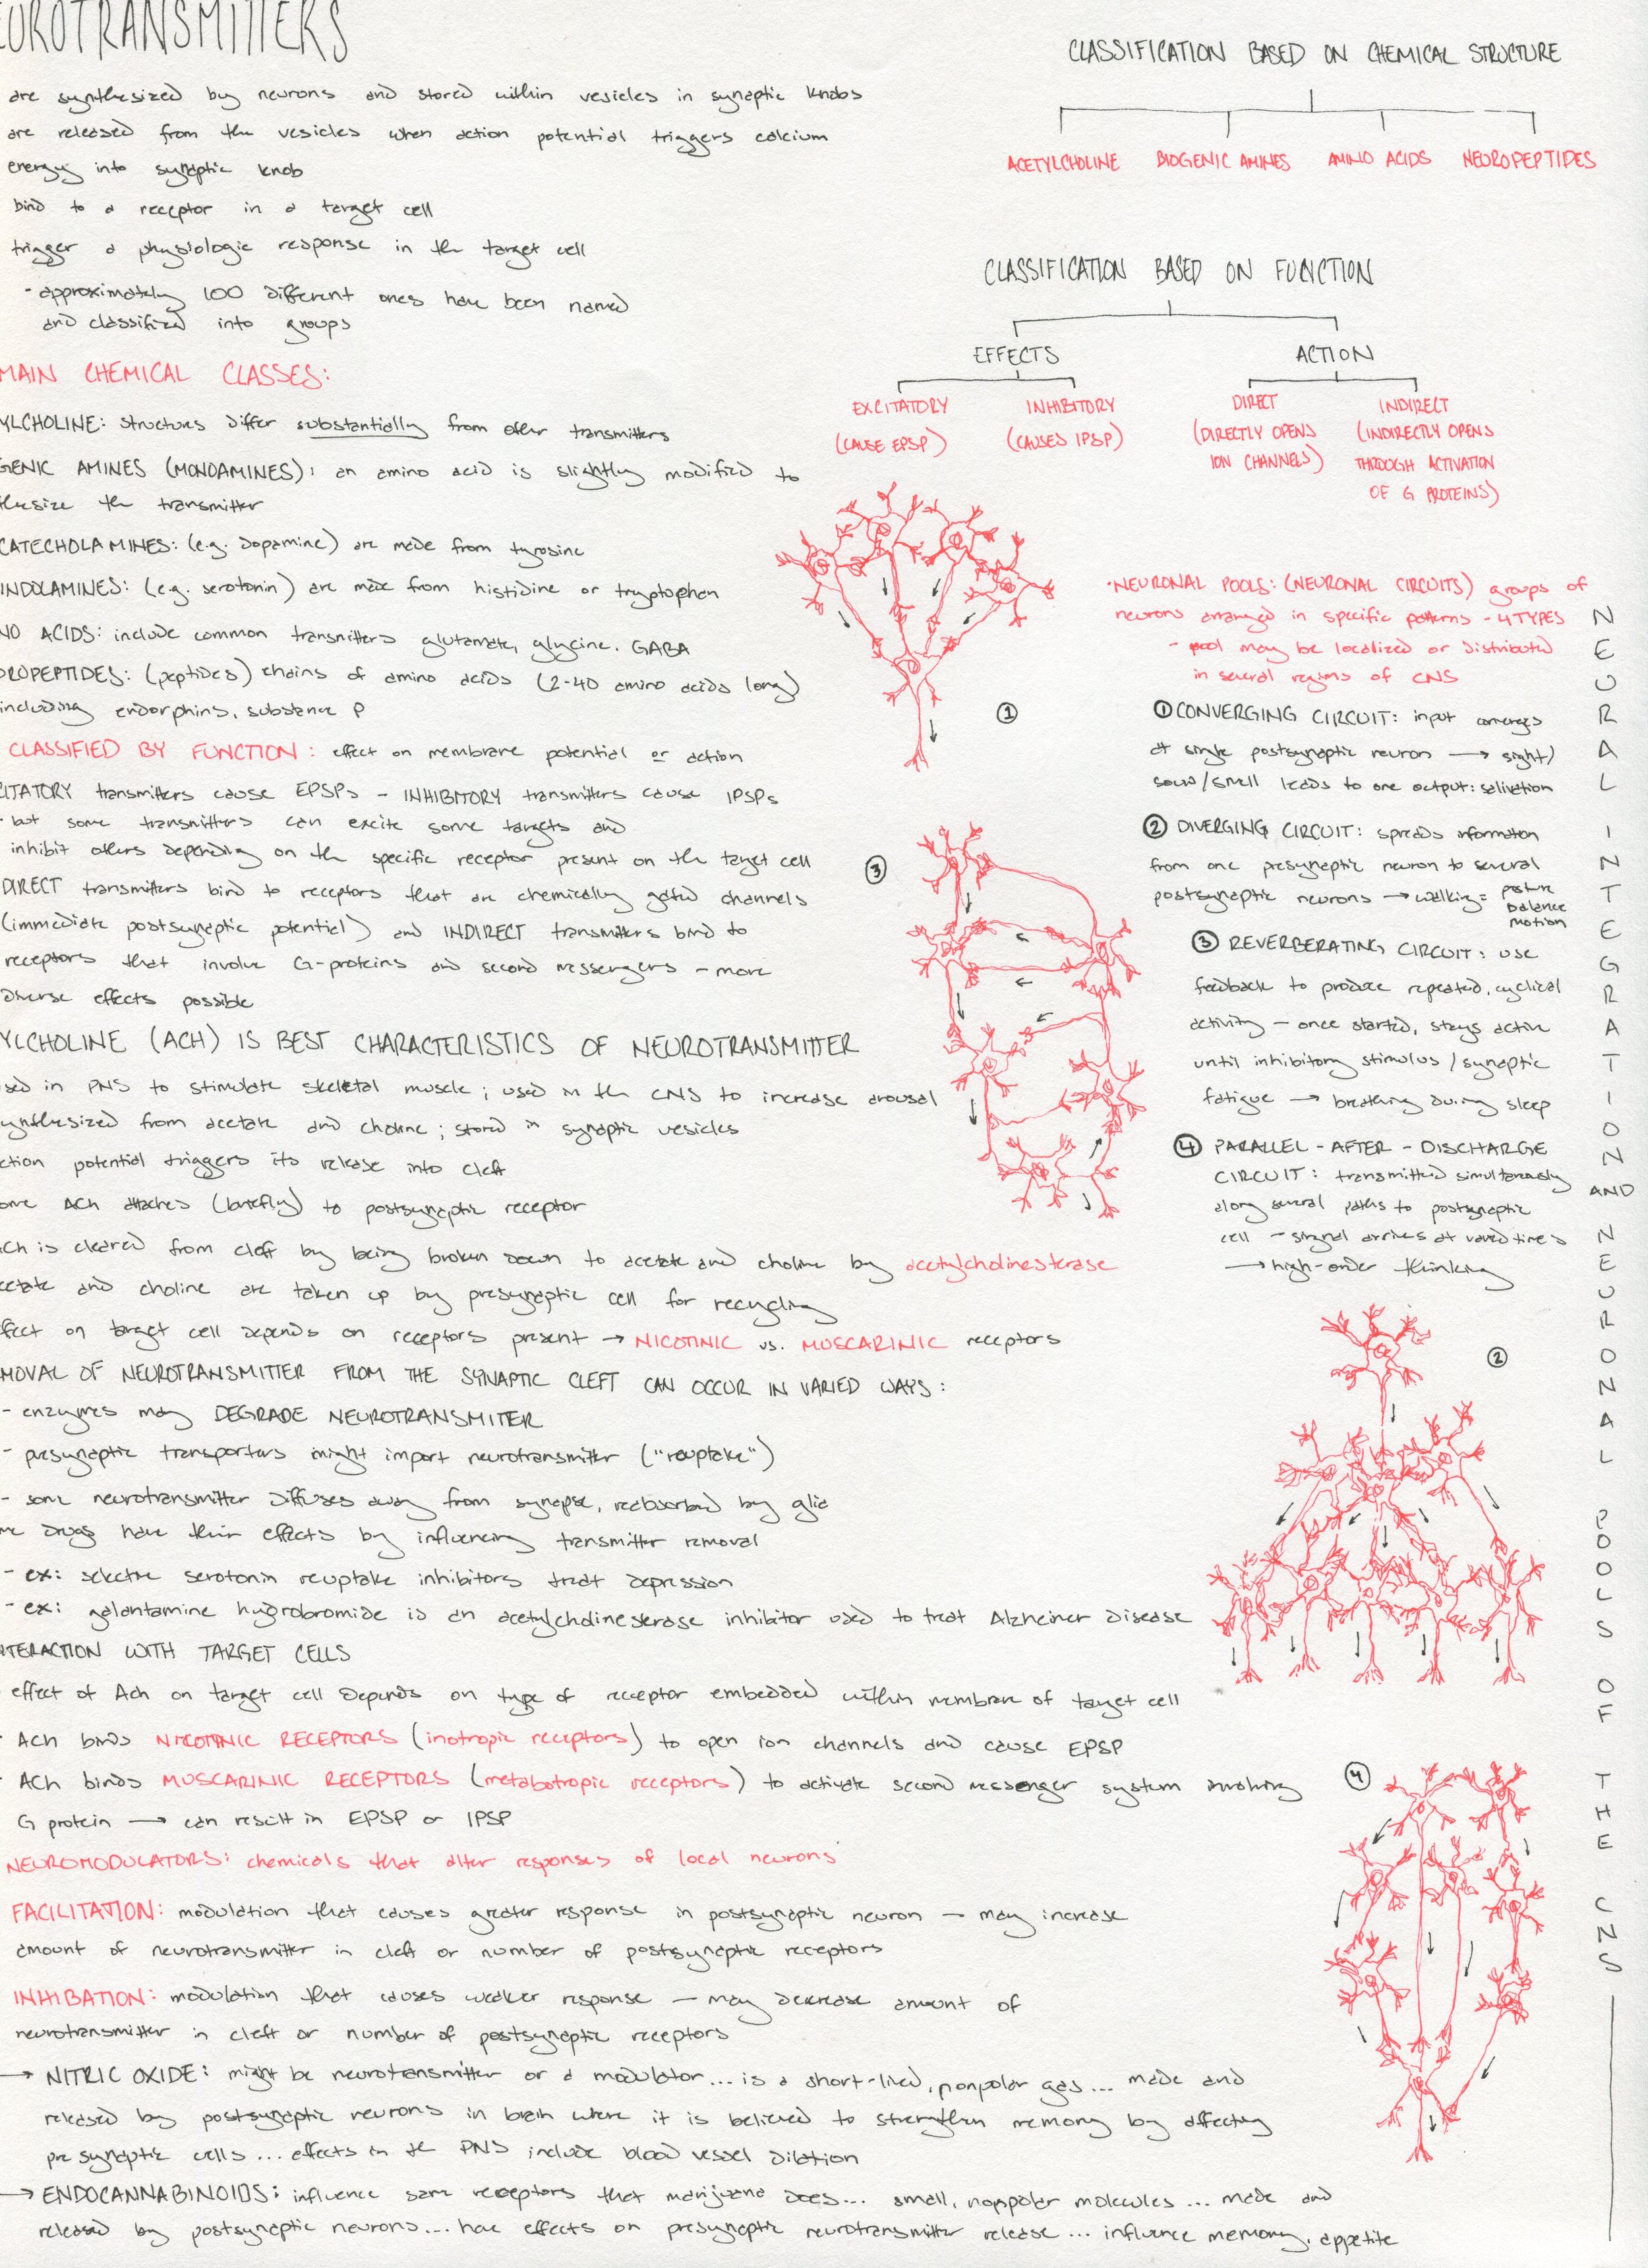 EUROTRANSMITTERS
are synthesized by neurons and stored within vesicles in synaptic knobs
are released from the vesicles when action potential triggers calcium
energy into synaptic knob
bind to a receptor in a target cell
trigger a physiologic response in the target cell
- approximately 100 different ones have been named
and classified into groups
MAIN CHEMICAL CLASSES:
YLCHOLINE: structures differ substantially from other transmitters
GENIC AMINES (MONOAMINES): an amino acid is slightly modified to
thesize the transmitter
CATECHOLAMINES: (e.g. dopamine) are made from tyrosine
INDOLAMINES: (e.g. serotonin) are made from histidine or tryptophan
NO ACIDS: include common transmitters glutamate, glycine, GABA
OROPEPTIDES: (peptides) chains of amino acids (2-40 amino acids long)
including endorphins, substance P
CLASSIFIED BY FUNCTION: effect on membrane potential or action
CITATORY transmitters cause EPSPs - INHIBITORY transmitters cause IPSPs
- but some transmitters can excite some targets and
inhibit others depending on the specific receptor present on the target cell
DIRECT transmitters bind to receptors that are chemically gated channels
(immediate postsynaptic potential) and INDIRECT transmitters bind to
receptors that involve G-proteins and second messengers - more
diverse effects possible
YLCHOLINE (ACH) IS BEST CHARACTERISTICS OF NEUROTRANSMITTER
sed in PNS to stimulate skeletal muscle; used in the CNS to increase arousal
ynthesized from acetate and choline; stored in synaptic vesicles
ction potential triggers its release into cleft
ome ACh attaches (briefly) to postsynaptic receptor
Ch is cleared from cleft by being broken down to acetate and choline by acetylcholinesterase
cetate and choline are taken up by presynaptic cell for recycling
ffect on target cell depends on receptors present → NICOTINIC vs. MUSCARINIC receptors
MOVAL OF NEUROTRANSMITTER FROM THE SYNAPTIC CLEFT CAN OCCUR IN VARIED WAYS:
- enzymes may DEGRADE NEUROTRANSMITER
- presynaptic transporters might import neurotransmitter ("reuptake")
- some neurotransmitter diffuses away from synapse, reabsorbed by glia
me drugs have their effects by influencing transmitter removal
- ex: selective serotonin reuptake inhibitors treat depression
- ex: galantamine hydrobromide is an acetylcholinesterase inhibitor used to treat Alzheimer Disease
NTERACTION WITH TARGET CELLS
effect of Ach on target cell depends on type of receptor embedded within membrane of target cell
· ACh binds NICOTINIC RECEPTORS (inotropic receptors) to open ion channels and cause EPSP
· ACh binds MUSCARINIC RECEPTORS (metabotropic receptors) to activate second messenger system involving
G protein → can result in EPSP or IPSP
NEUROMODULATORS: chemicals that alter responses of local neurons
FACILITATION: modulation that causes greater response in postsynaptic neuron - may increase
amount of neurotransmitter in cleft or number of postsynaptic receptors
INHIBATION: modulation that causes weaker response - may decrease amount of
neurotransmitter in cleft or number of postsynaptic receptors
→ NITRIC OXIDE: might be neurotransmitter or a modulator... is a short-lived, nonpolar gas... made and
released by postsynaptic neurons in brain where it is believed to strengthen memory by affecting
presynaptic cells... effects in the PNS include blood vessel dilation
→ ENDOCANNABINOIDS: influence same receptors that marijuana does... small, nonpolar molecules... made and
released by postsynaptic neurons... have effects on presynaptic neurotransmitter release... influence memory, appetite
CLASSIFICATION BASED ON CHEMICAL STRUCTURE
ACETYLCHOLINE BIOGENIC AMINES AMINO ACIDS NEUROPEPTIDES
CLASSIFICATION BASED ON FUNCTION
EFFECTS ACTION
EXCITATORY INHIBITORY DIRECT INDIRECT
(CAUSE EPSP) (CAUSES IPSP) (DIRECTLY OPENS (INDIRECTLY OPENS
ION CHANNELS) THROUGH ACTIVATION
OF G PROTEINS)
· NEURONAL POOLS: (NEURONAL CIRCUITS) groups of
neurons arranged in specific patterns - 4 TYPES
- pool may be localized or distributed
in several regions of CNS
① CONVERGING CIRCUIT: input converges
at single postsynaptic neuron → sight/
sound/smell leads to one output: salivation
② DIVERGING CIRCUIT: spreads information
from one presynaptic neuron to several
postsynaptic neurons → walking = posture
balance
motion
③ REVERBERATING CIRCUIT: use
feedback to produce repeated, cyclical
activity - once started, stays active
until inhibitory stimulus/synaptic
fatigue → breathing during sleep
④ PARALLEL-AFTER-DISCHARGE
CIRCUIT: transmitted simultaneously
along several paths to postsynaptic
cell - signal arrives at varied times
→ high-order thinking
①
③
②
④
NEURAL INTEGRATION AND NEURONAL POOLS OF THE CNS